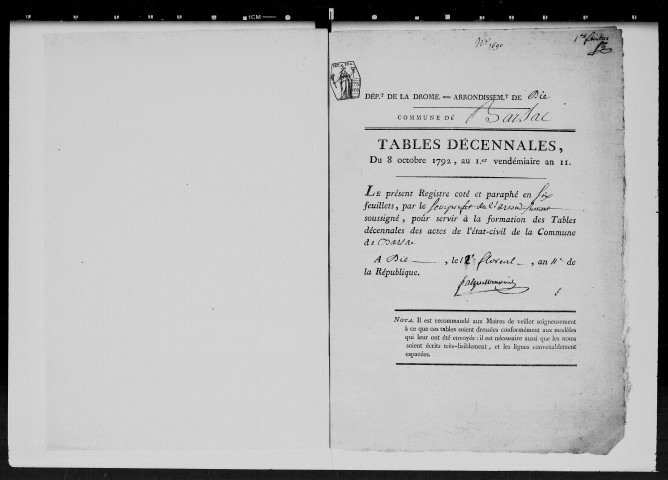 1CM
DÉP.T DE LA DROME. ARRONDISSEM.T DE Die
COMMUNE DE Barsac
TABLES DÉCENNALES,
Du 8 octobre 1792, au 1.er vendémiaire an 11.
LE présent Registre coté et paraphé en six
feuillets, par le
soussigné, pour servir à la formation des Tables
décennales des actes de l'état-civil de la Commune
de Barsac
A Die, le 12 floreal, an 11e de
la République.
NOTA. Il est recommandé aux Maires de veiller soigneusement
à ce que ces tables soient dressées conformément aux modèles
qui leur ont été envoyés : il est nécessaire aussi que les noms
soient écrits très-lisiblement, et les lignes convenablement
espacées.